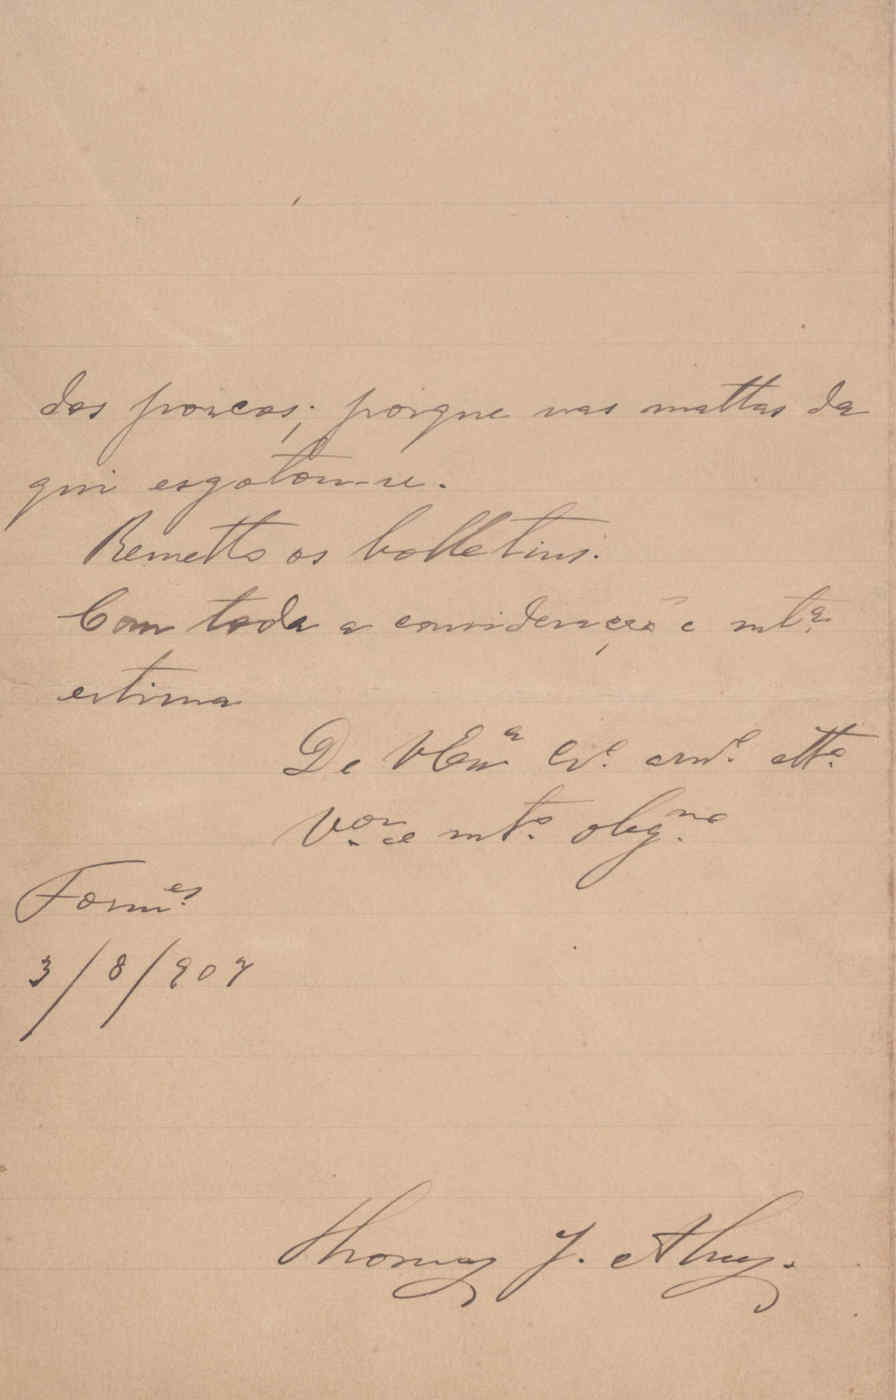 dos porcos; porque nas mattas da
qui esgotou-se.
Remetto os bolletins.
Com toda a consideração e mt.ª
estima
De VExª Cr.º am.º att.º
V.or e mt.º obg.mo
3/8/907
Thomaz J.